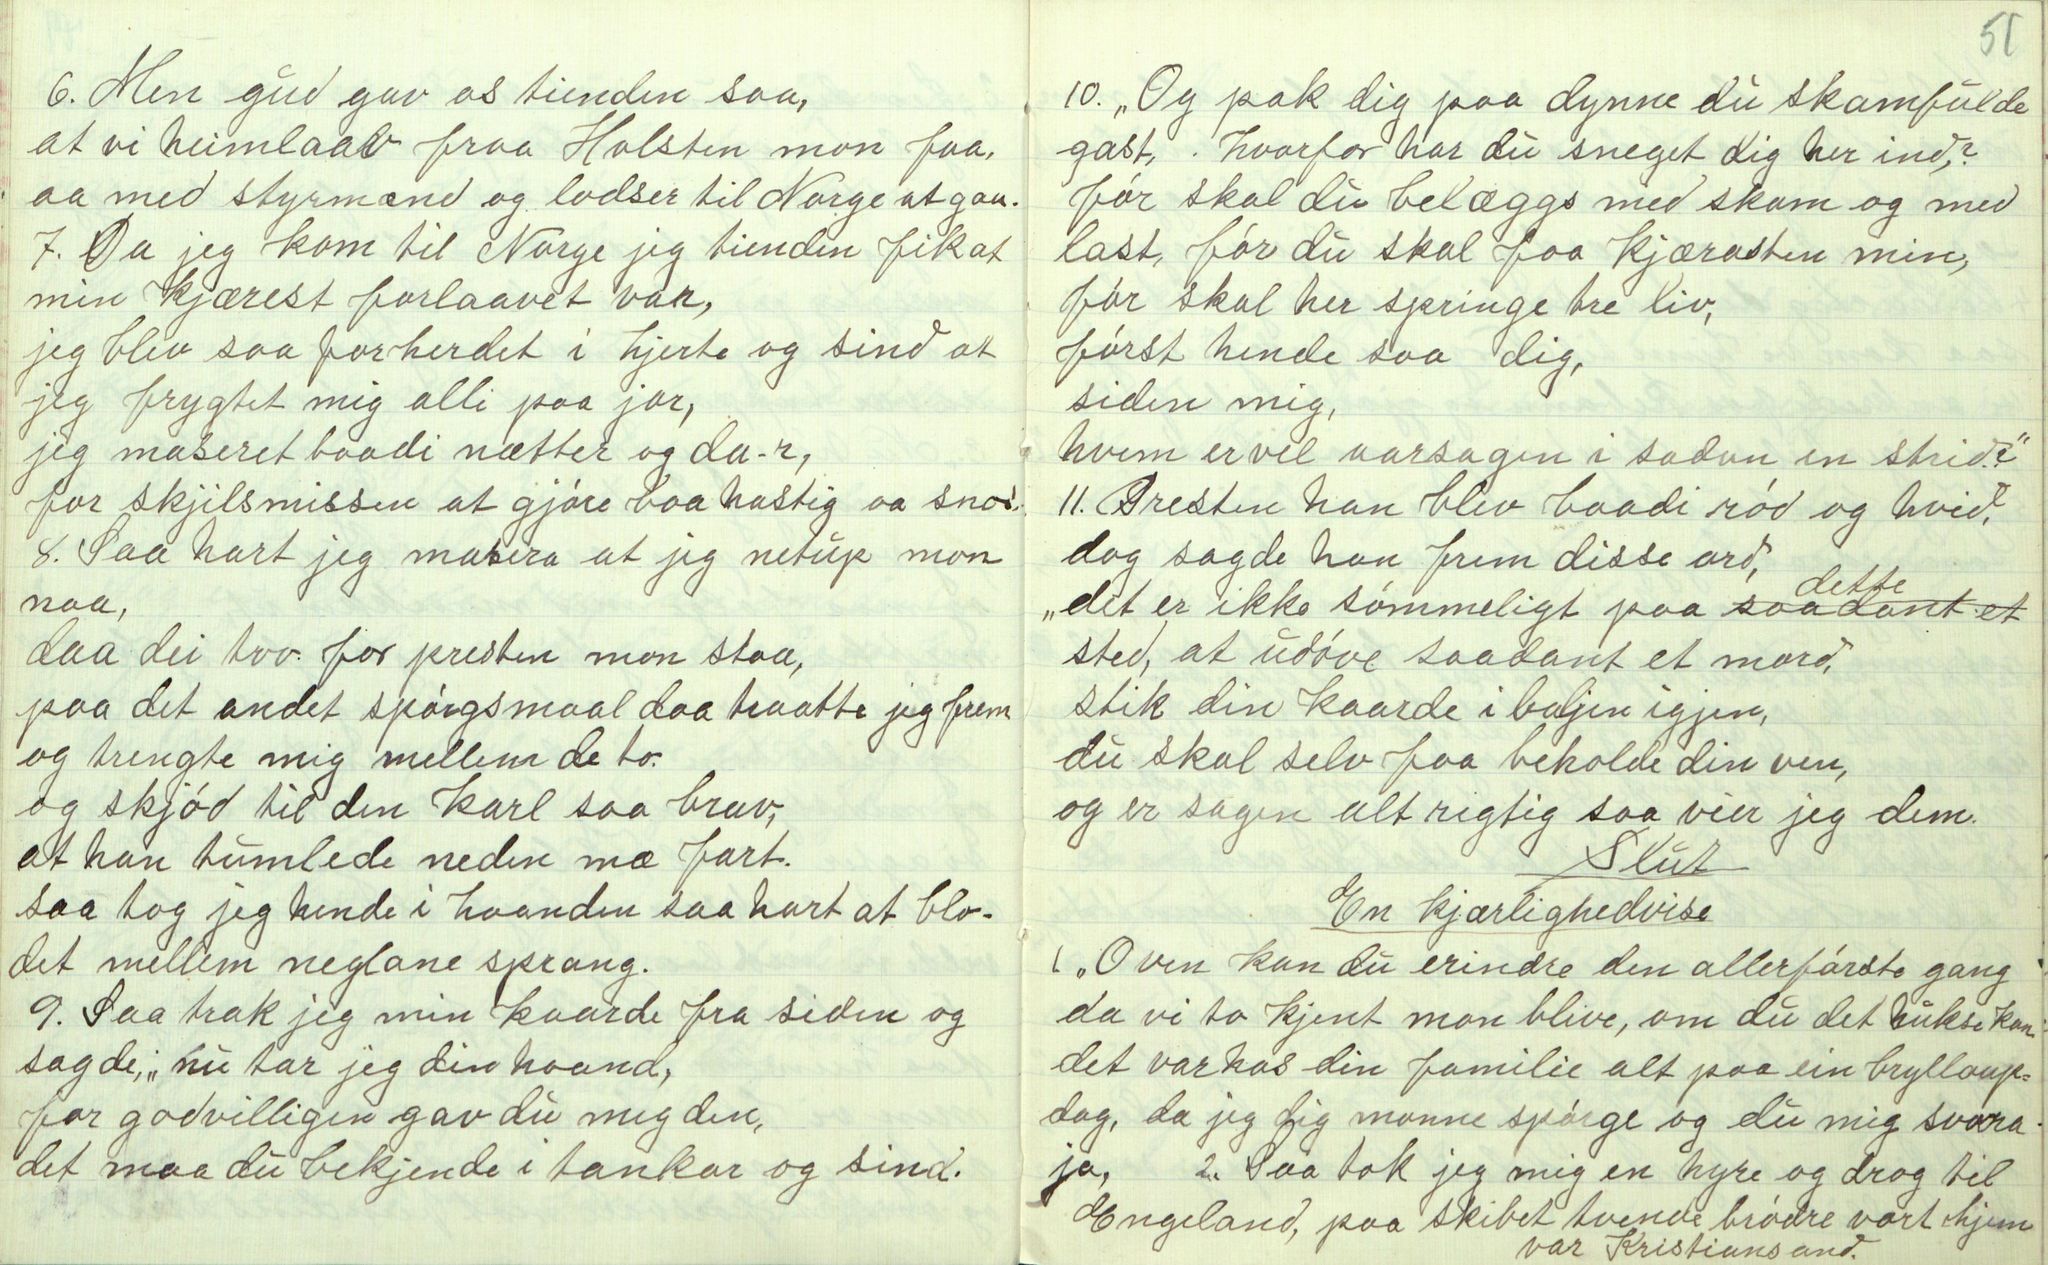 6. Men gud gav os tienden saa,
at vi heimlaav fraa Holsten mon faa,
aa med styrmænd og lodser til Norge at gaa.
7. Da jeg kom til Norge jeg tienden fik at
min kjærest forlaavet var,
jeg blev saa forherdet i hjerte og sind at
jeg frygtet mig alli paa jor,
jeg maseret baadi nætter og da-r,
for skjilsmissen at gjöre baa hastig aa snar.
8. Saa hart jeg masera at jeg netup mon
naa,
daa dei tvo for presten mon staa,
paa det andet spörgsmaal daa traatte jeg frem
og trengte mig mellem de to.
og skjöd til den karl saa brav,
at han tumlede neden mæ fart.
saa tog jeg hende i haanden saa hart at blo-
det mellem neglane sprang.
9. Saa trak jeg min kaarde fra siden og
sagde; „nu tar jeg din haand,
for godvilligen gav du meg den,
det maa du bekjende i tankar og sind.
51
10. „Og pak dig paa dynne du skamfulde
gast, hvorfor har du sneget dig her ind,?
för skal du belæggs med skam og med
last, för du skal faa kjærasten min,
för skal her springe tre liv,
först hende saa dig,
siden mig,
hvem er vel aarsagen i sadan en strid?"
11. Presten han blev baadi röd og hvid,
dog sagde han frem disse ord,
„det er ikke sömmeligt paa saadant et dette
sted, at udöve saadant et mord,
stik din kaarde i baljen igjen,
du skal selv faa beholde din ven,
og er sagen alt rigtig saa vier jeg dem.
Slut
En kjærlighedvise
1. „O ven kan du erindre den allerförste gang
da vi to kjent mon blive, om du det hukse kan
det var hos din familie alt paa ein bryllaup-
dag, da jeg dig monne spörge og du mig svara
ja, 2. Saa tok jeg mig en hyre og drog til
Engeland, paa skibet tvende brödre vart hjem
var Kristiansand.